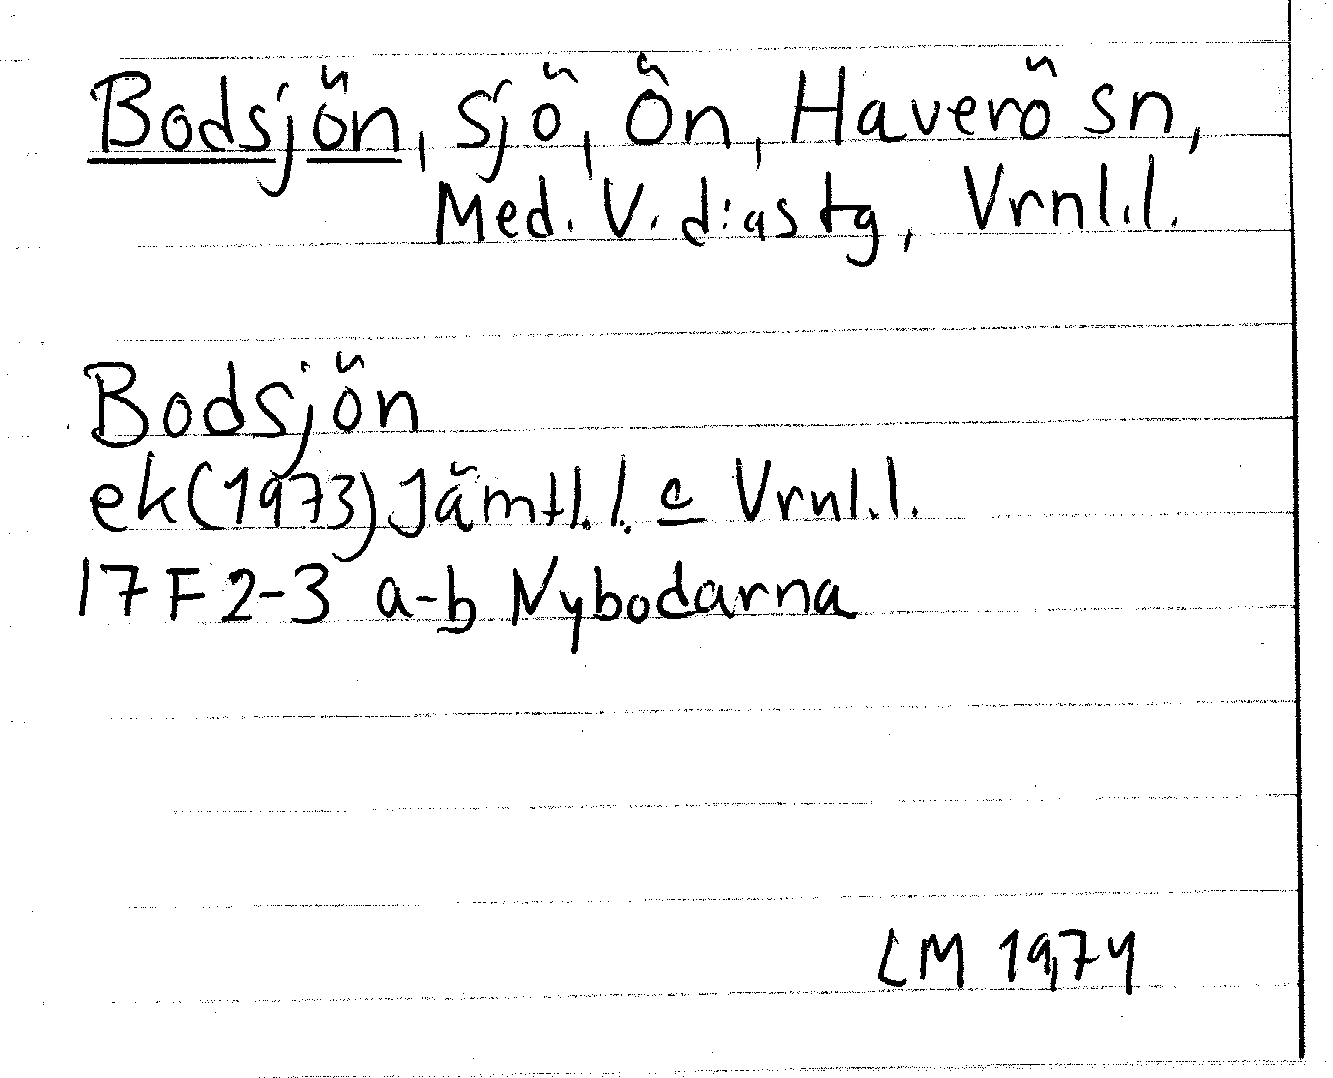 Bodsjön, sjö, Ön, Haverö sn,
Med. V. d:as tg, Vrnl.l.
Bodsjön
ek(1973) Jämtl.l. c Vrnl.l.
17 F 2-3 a-b Nybodarna
LM 1974